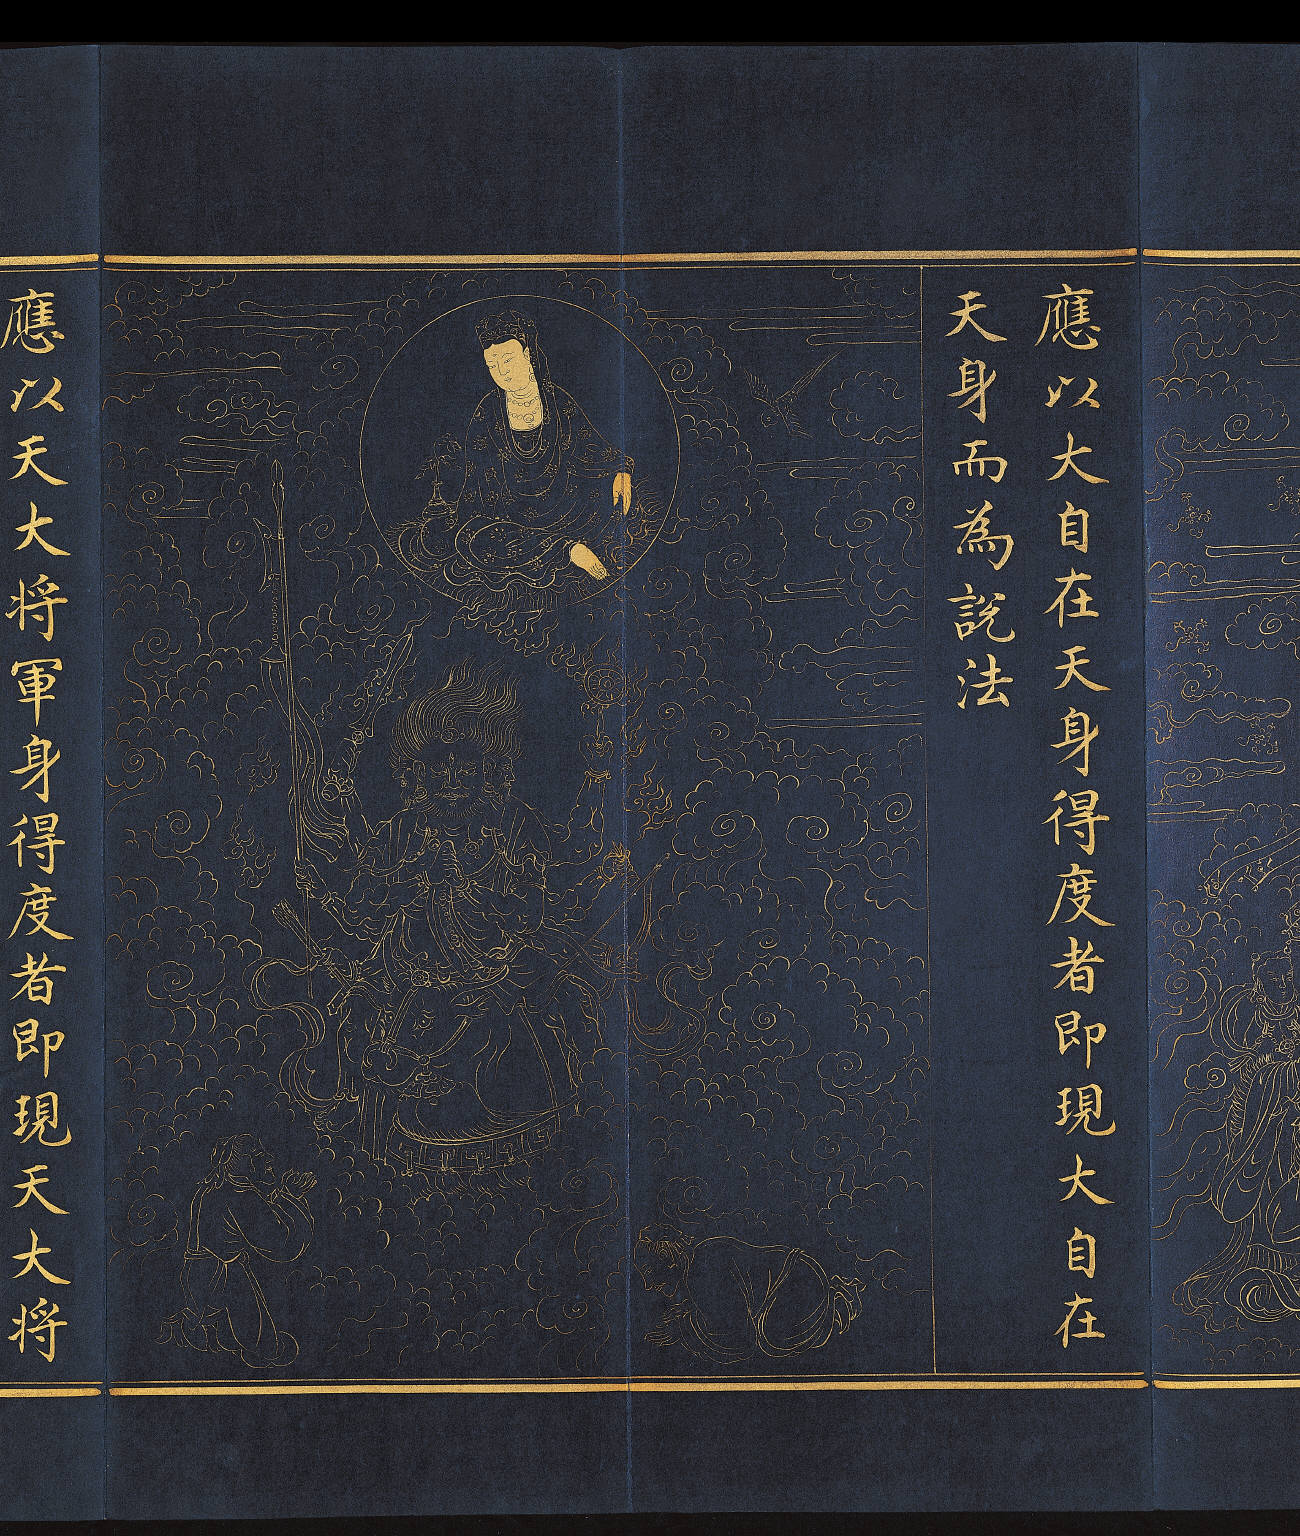 應以大自在天身得度者即現大自在
天身而為説法
應以天大将軍身得度者即現天大将